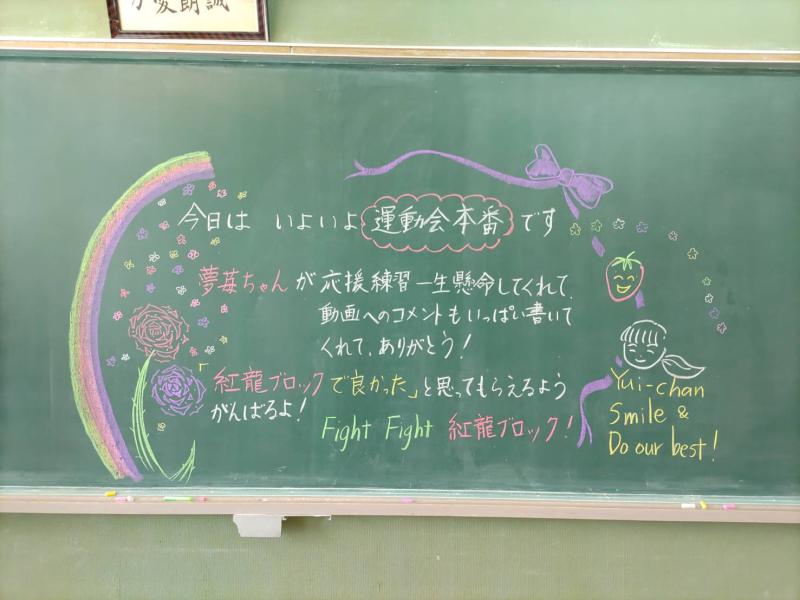 愛朗誠
今日は いよいよ 運動会本番 です
夢苺ちゃんが応援練習一生懸命してくれて、
動画へのコメントもいっぱい書いて
くれて、ありがとう!
「紅龍ブロックで良かった」と思ってもらえるよう
がんばるよ!
Fight Fight 紅龍ブロック!
Yui-chan
Smile &
Do our best!